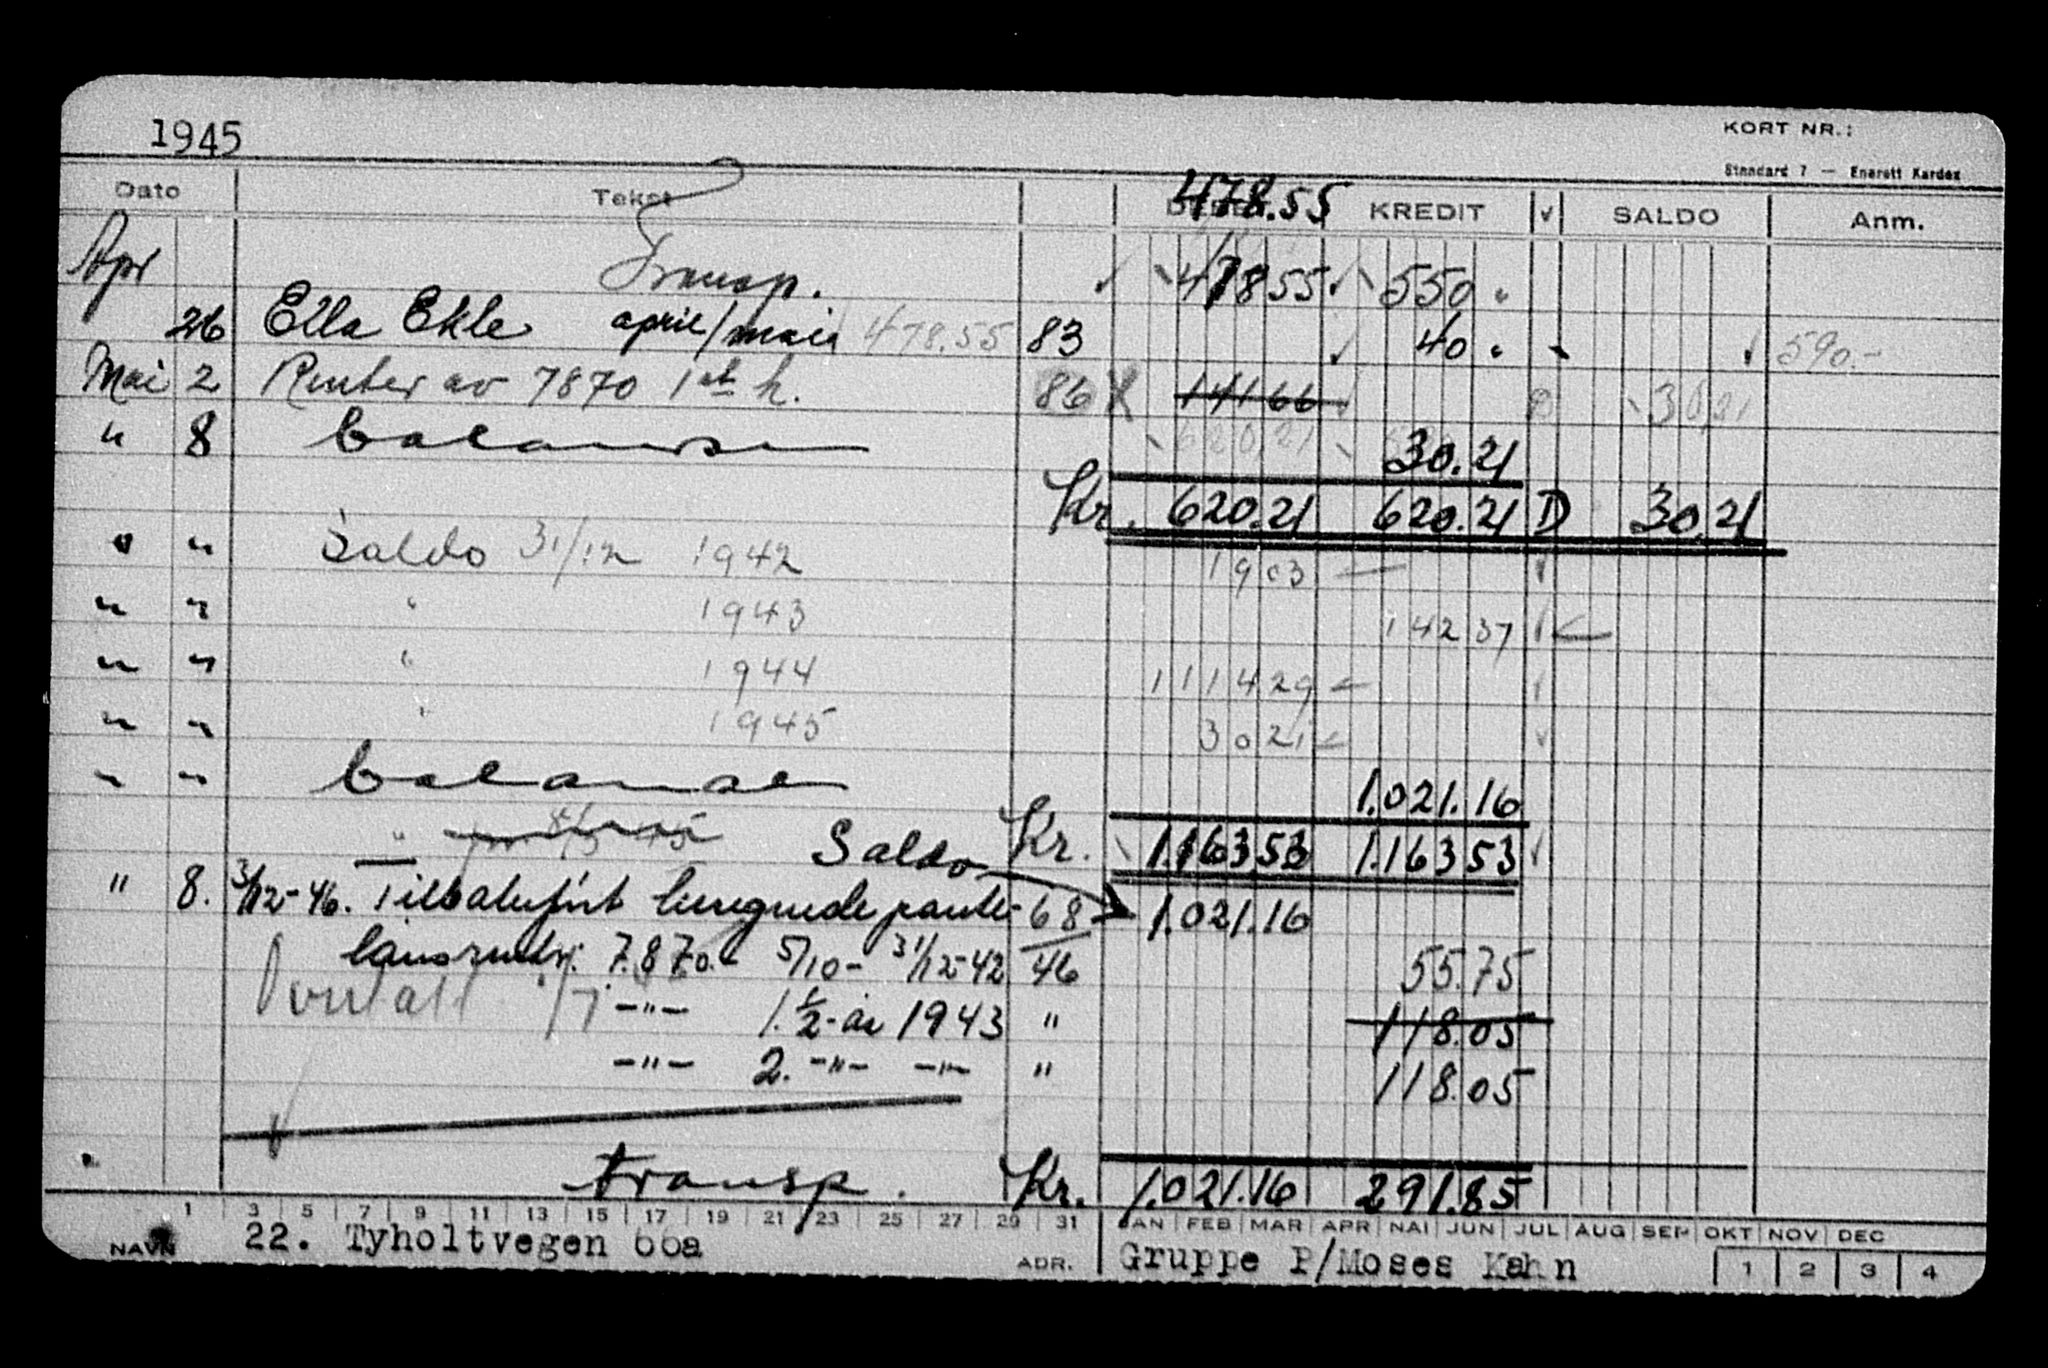 1945 KORT NR.:
Standard 7 — Enerett Kardex
Dato Tekst 478.55 KREDIT √ SALDO Anm.
Apr Transp. 478 55 550
26 Ella Ekle april/mai 478.55 83 40 590.-
Mai 2 Renter av 7870 1st h. 86 141 66 30,21
" 8 balanse 620,21 30.21
Kr. 620.21 620.21 D 30,21
" " Saldo 31/12 1942 19 03
" " " 1943 142 37
" " " 1944 1114 29
" " " 1945 30 21
" " balanse 1.021.16
" Saldo Kr. 1.163 53 1.163 53
" 8. 3/12-46. Tilbakeført beregnede pante- 68 1.021.16
lånsrenter: 7.870.- 5/10 - 31/12-42 46 55.75
-"- 1. ½-år 1943 " 118.05
-"- 2. -"- -"- " 118.05
transp. Kr. 1.021.16 291.85
1 3 5 7 9 11 13 15 17 19 21 23 25 27 29 31 JAN FEB MAR APR MAI JUN JUL AUG SEP OKT NOV DEC
NAVN 22. Tyholtvegen 66a ADR. Gruppe P/Moses Kahn 1 2 3 4